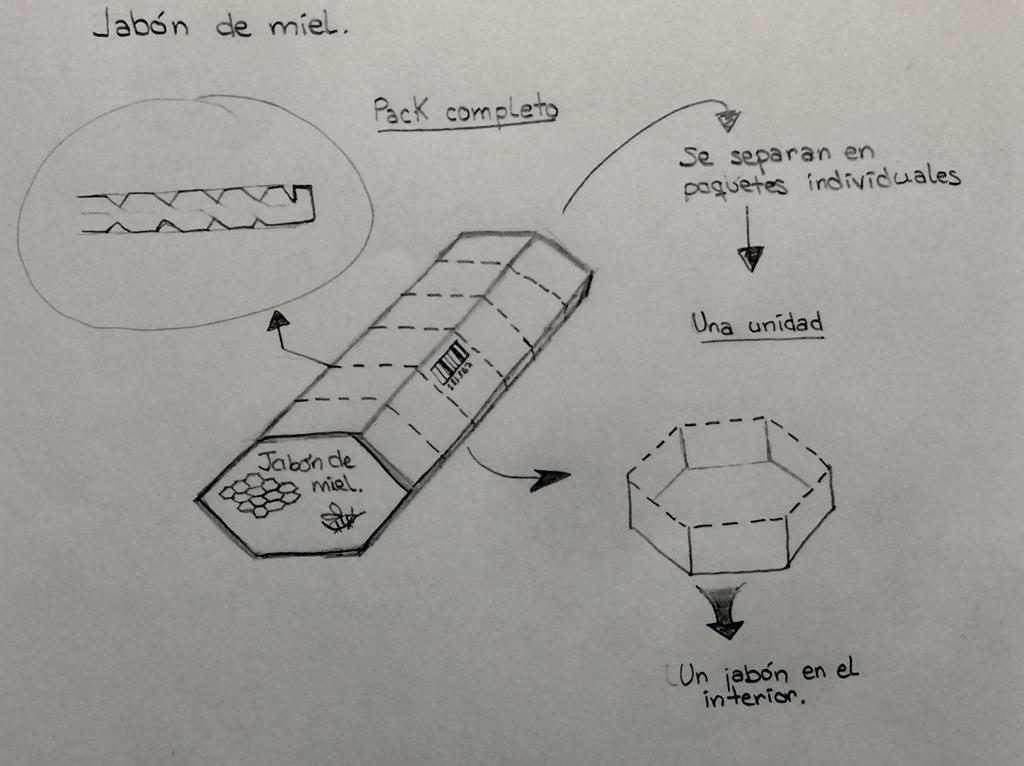 Jabón de miel.
Pack completo
Se separan en
paquetes individuales
Una unidad
Jabón de
miel.
Un jabón en el
interior.